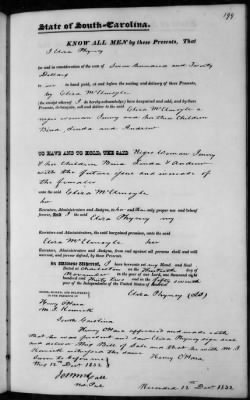 199
State of South-Carolina.
KNOW ALL MEN by these Presents, That
I Eliza Phynny
for and in consideration of the sum of Seven Hundred and Twenty
Dollars
to me in hand paid, at and before the sealing and delivery of these Presents,
by Eliza McAnsyle
(the receipt whereof I do hereby acknowledge) have bargained and sold, and by these
Presents, do bargain, sell and deliver to the said Eliza McAnsyle a
negro woman Jenny and her three Children
Bina, Linda and Andrew
TO HAVE AND TO HOLD, THE SAID Negro Woman Jenny
& her Children Bina Linda & Andrew
with the future issue and increase of
the females
unto the said Eliza McAnsyle
her
Executors, Administrators and Assigns, to her and their only proper use and behoof
forever. And I the said Eliza Phynny my
Executors, Administrators, the said bargained premises, unto the said
Eliza McAnsyle her
Executors, Administrators and Assigns, from and against all persons shall and will
warrant, and forever defend, by these Presents.
In Witness Whereof, I have hereunto set my Hand and Seal
Dated at Charleston on the Thirtieth day of
November in the year of our Lord, one thousand eight
hundred and Thirty two and in the Fifty seventh
year of the Independence of the United States of America.
SIGNED, SEALED, AND DELIVERED
IN THE PRESENCE OF
Eliza Phynny (LS)
Henry O'Hara
South Carolina
Henry O'Hara appeared and made oath
that he was present and saw Eliza Phynny sign seal
and deliver this Bill of Sale and that he with M. I.
witnessed the same
Sworn to before me
this 12th Decr 1832
Henry O'Hara
Not. Pub.
Recorded 12th Decr 1832